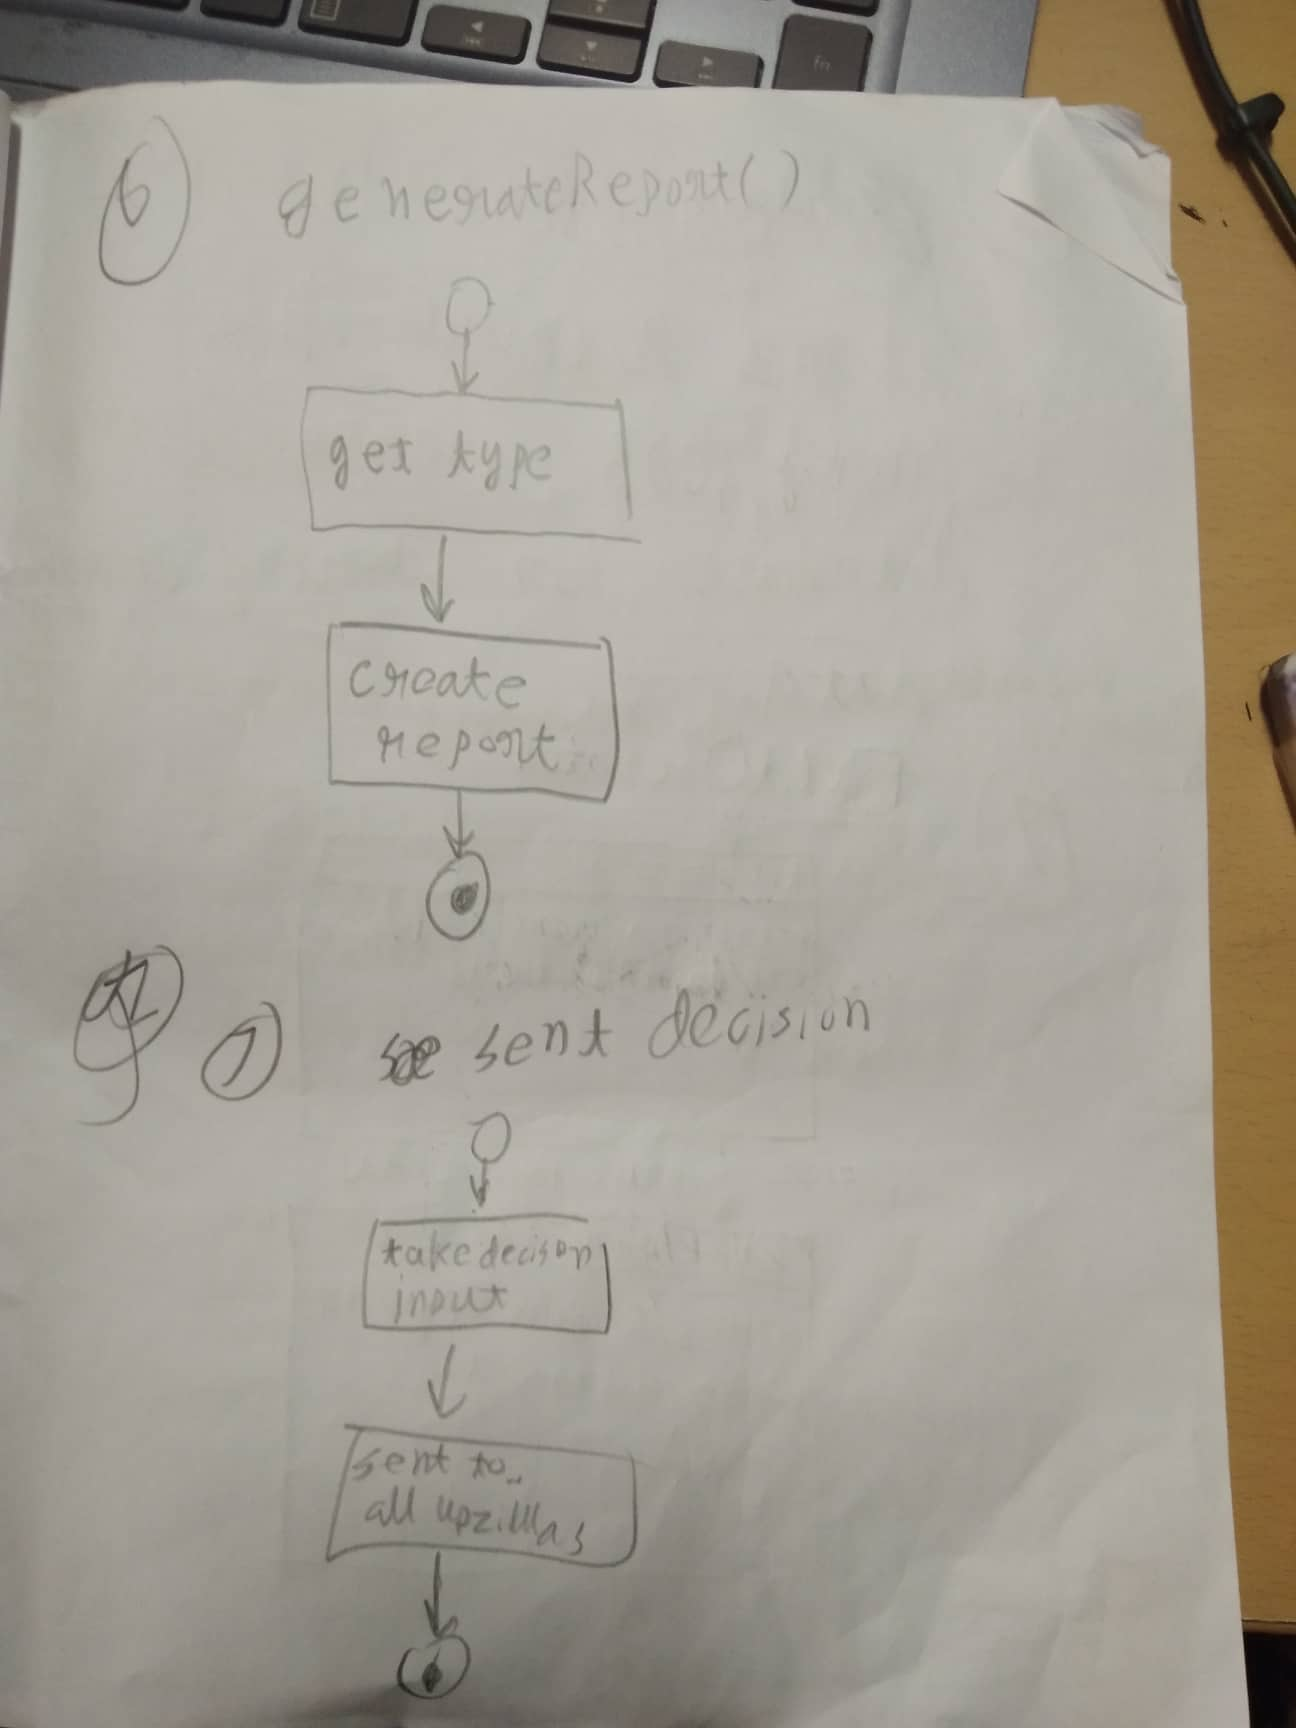 6 generateReport()
get type
create
report
7 sent decision
take decison
input
sent to
all upzillas
fn